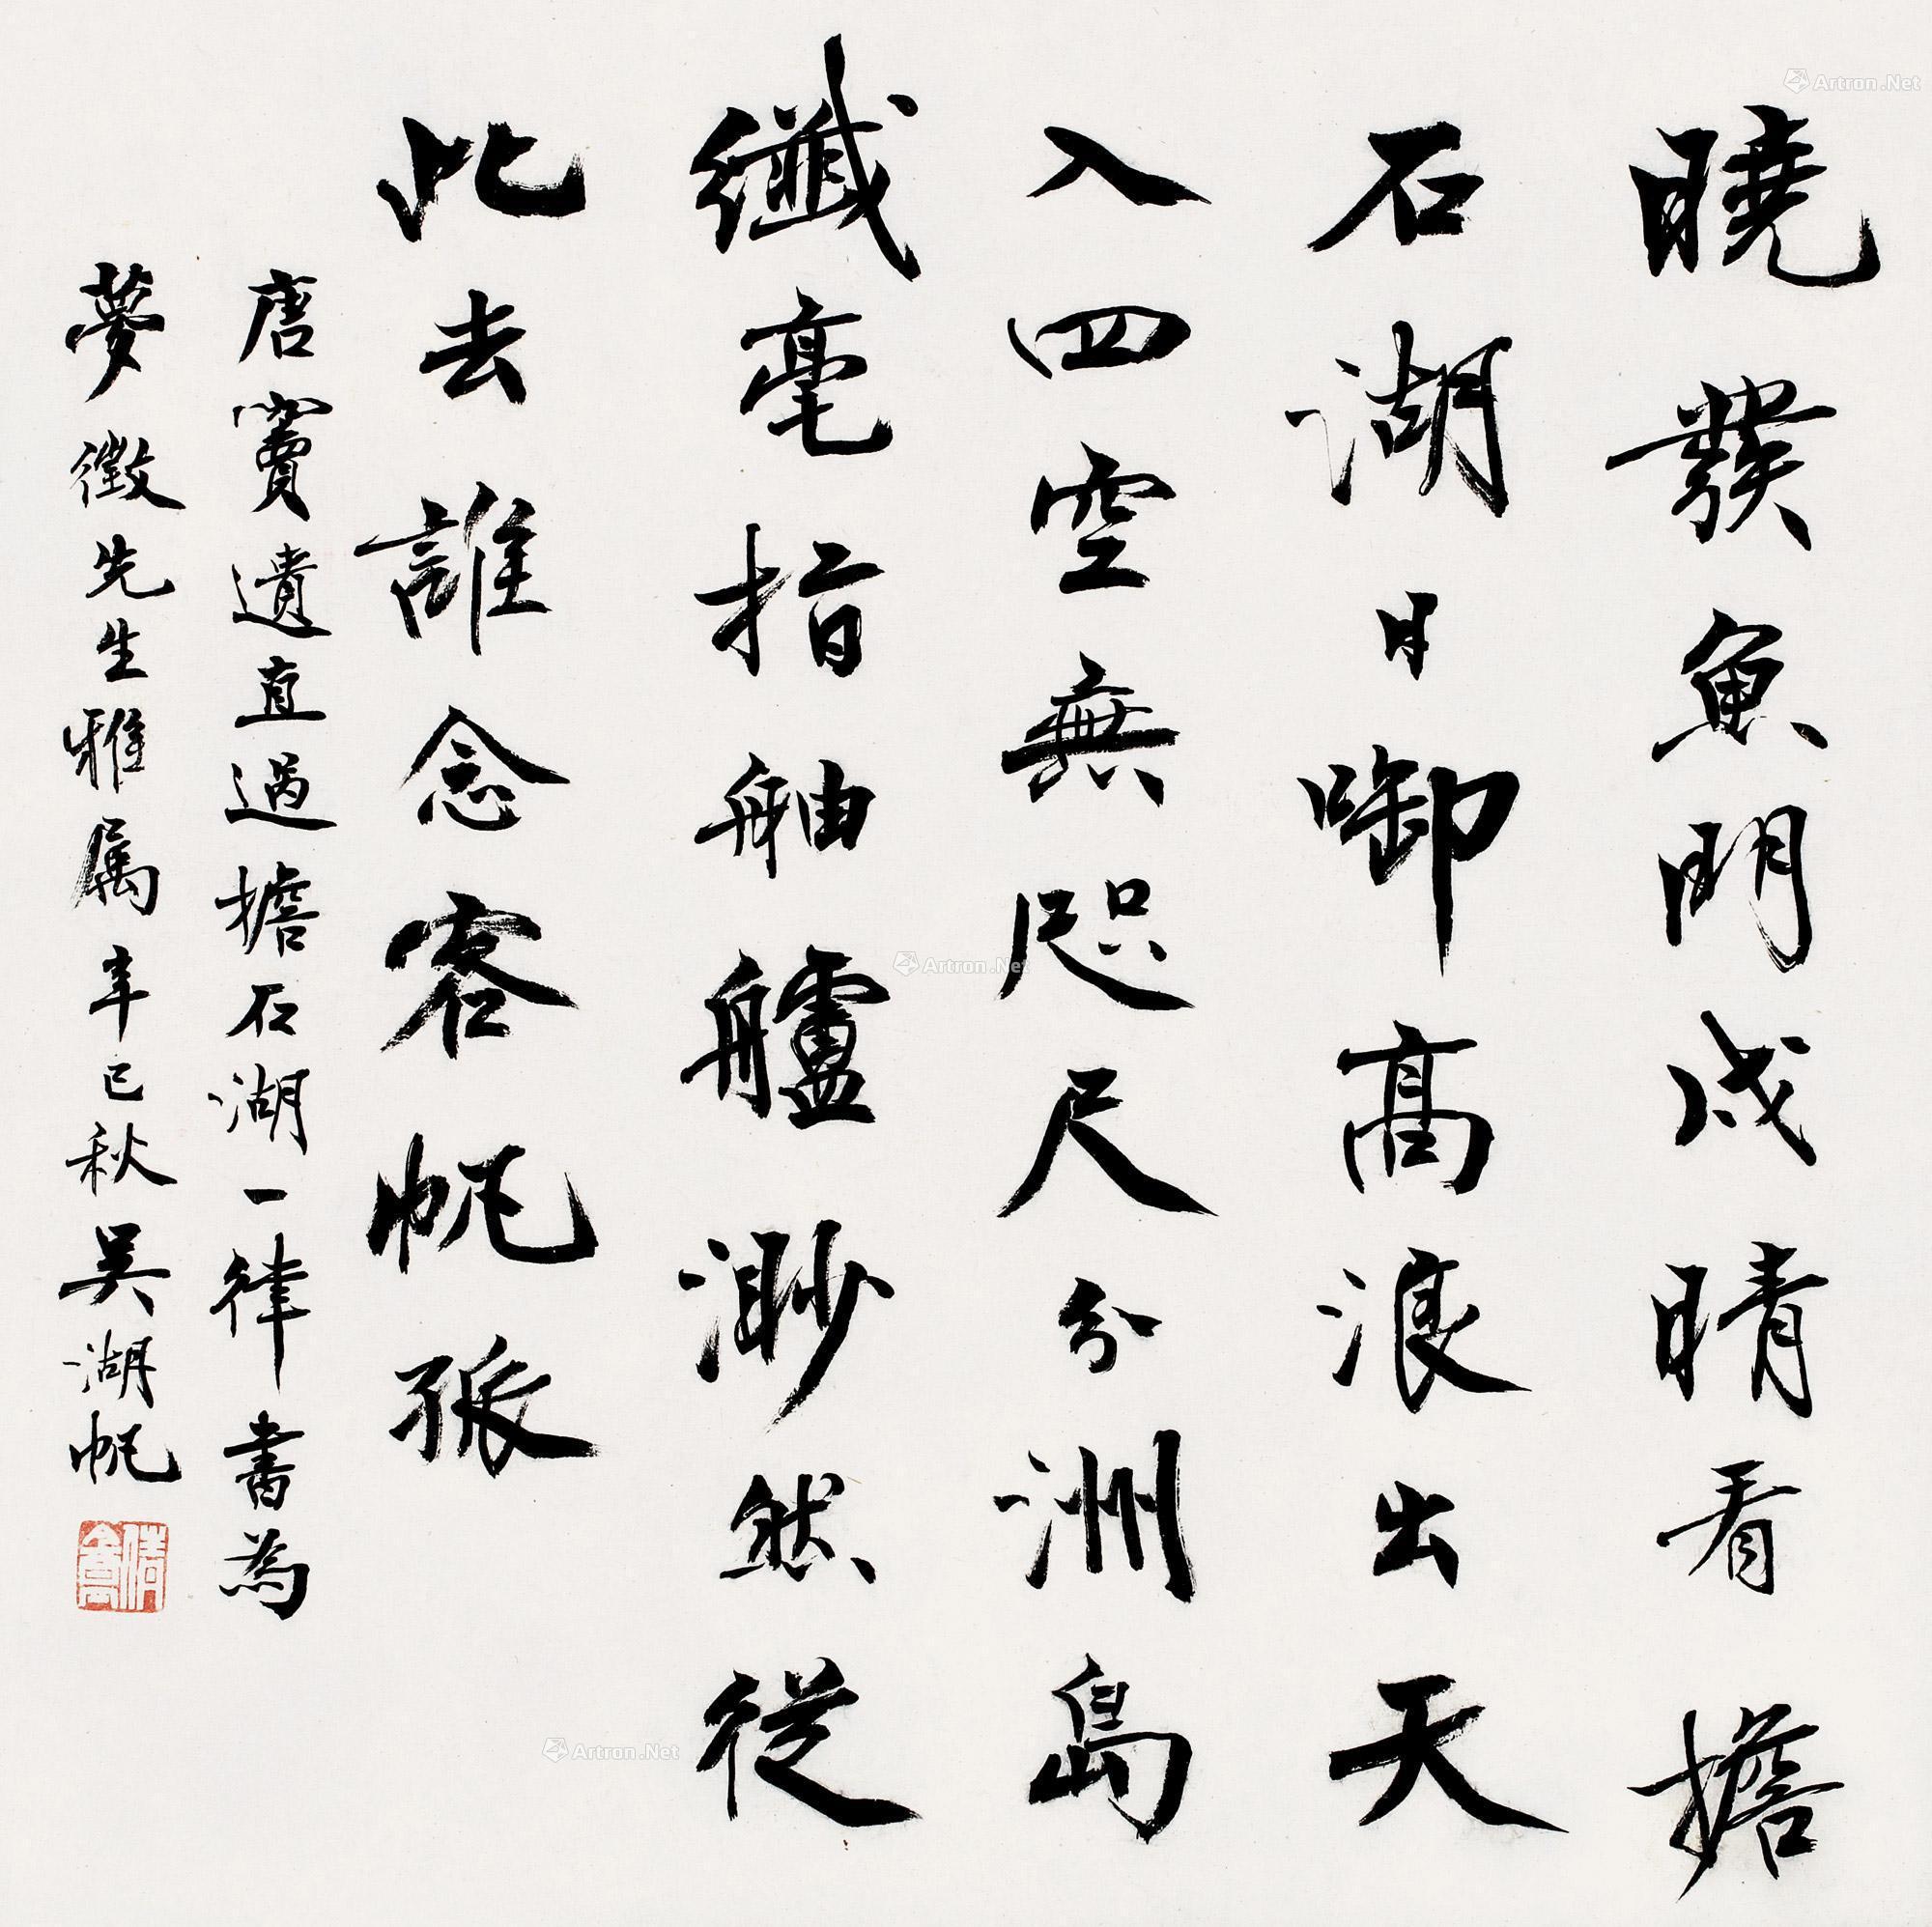 曉發魚門戍晴看擔
石湖日啣高浪出天
入四空無咫尺分洲島
纖毫指舳艫渺然從
此去誰念客帆孤
唐竇遺直過擔石湖一律書為
夢徵先生雅属辛巳秋吳湖帆
倩盦
Artron.Net
Artron.Net
Artron.Net